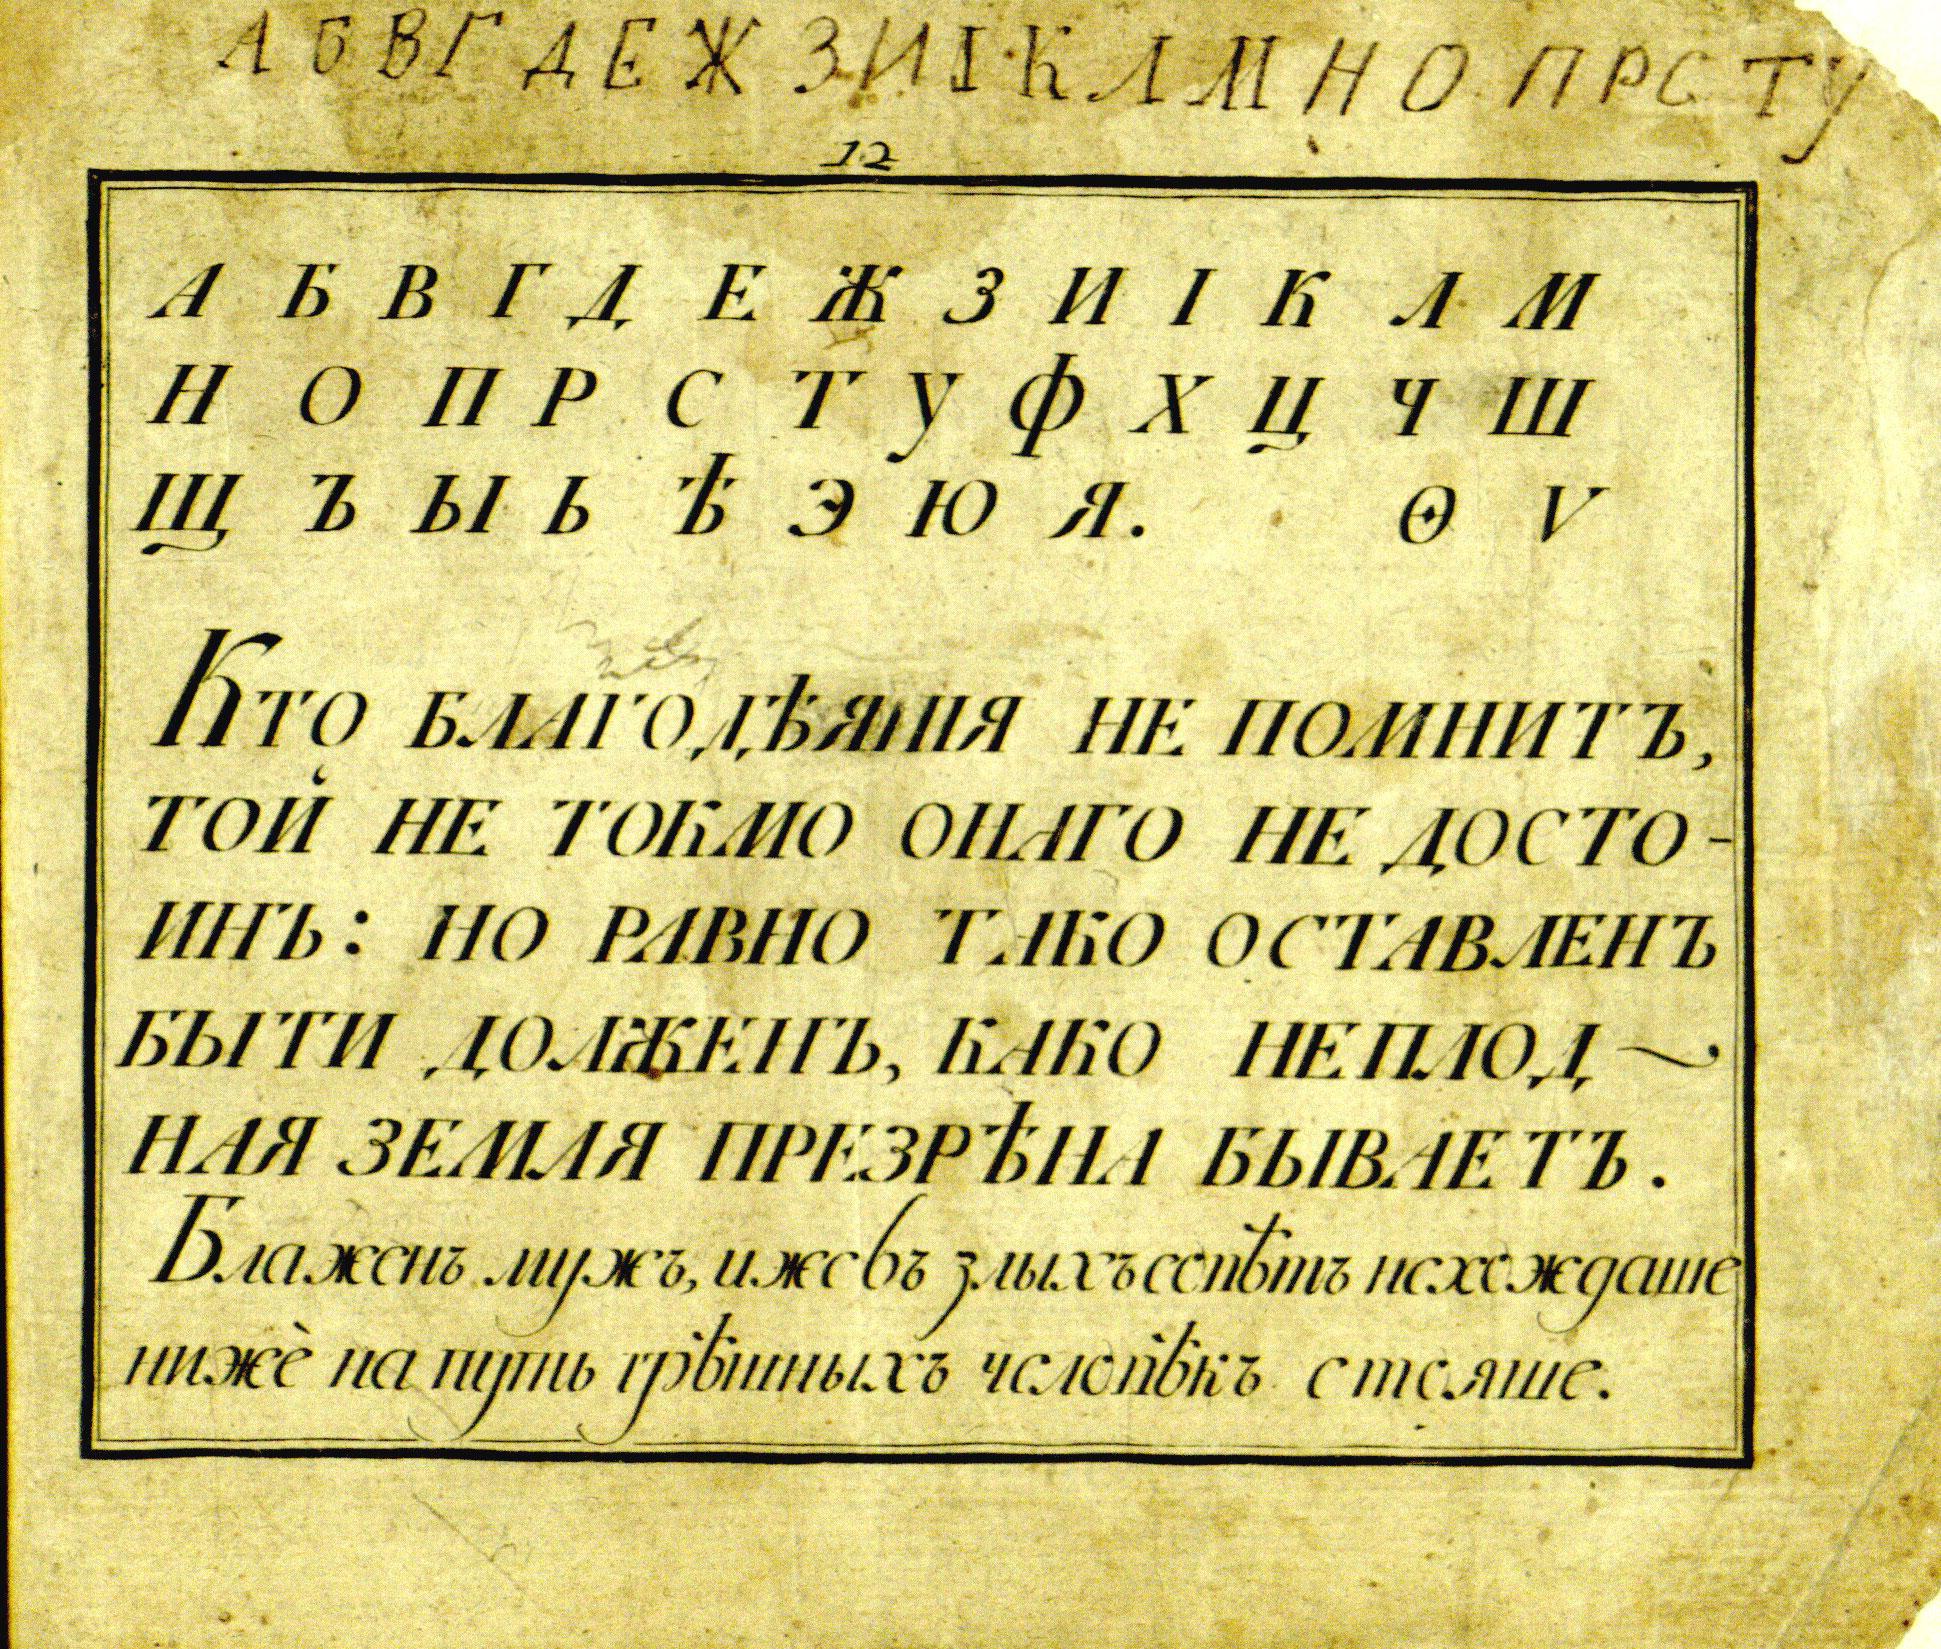 А Б В Г Д Е Ж З И І К Л М Н О П Р С Т У
12
А Б В Г Д Е Ж З И І К Л М
Н О П Р С Т У Ф Х Ц Ч Ш
Щ Ъ Ы Ь Ѣ Э Ю Я. Ѳ Ѵ
Кто БЛАГОДѢЯНІЯ НЕ ПОМНИТЪ,
ТОЙ НЕ ТОКМО ОНАГО НЕ ДОСТО-
ИНЪ: НО РАВНО ТАКО ОСТАВЛЕНЪ
БЫТИ ДОЛЖЕНЪ, КАКО НЕПЛОД~
НАЯ ЗЕМЛЯ ПРЕЗРѢНА БЫВАЕТЪ.
Блаженъ мужъ, иже въ злыхъ совѣтъ не хождаше
нижѐ на путь грѣшныхъ человѣкъ стояше.